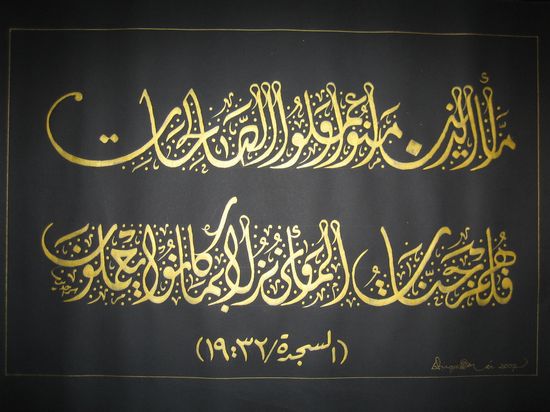 أما الذين آمنوا وعملوا الصالحات
فلهم جنات المأوى نزلا بما كانوا يعملون
(السجدة/١٩:٣٢)
2007